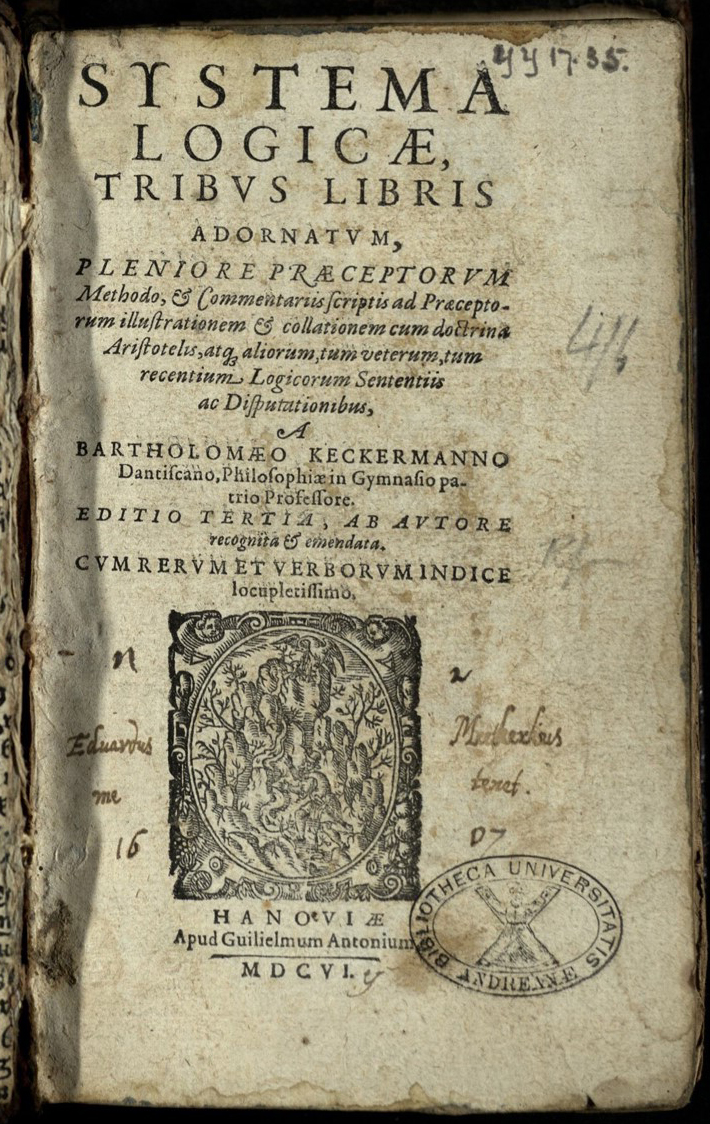 yy 17.35.
SYSTEMA
LOGICÆ,
TRIBVS LIBRIS
ADORNATVM,
PLENIORE PRÆCEPTORVM
Methodo, & Commentariis ſcriptis ad Præcepto-
rum illuſtrationem & collationem cum doctrina
Ariſtotelis, atq; aliorum, tum veterum, tum
recentium Logicorum Sententiis
ac Diſputationibus,
A
BARTHOLOMÆO KECKERMANNO
Dantiſcano, Philoſophiæ in Gymnaſio pa-
trio Profeſſore.
EDITIO TERTIA, AB AVTORE
recognita & emendata.
CVM RERVM ET VERBORVM INDICE
locupletiſſimo.
Eduardus
me
tenet.
16 07
HANOVIÆ
Apud Guilielmum Antonium
MDCVI.
BIBLIOTHECA UNIVERSITATIS
ANDREANÆ